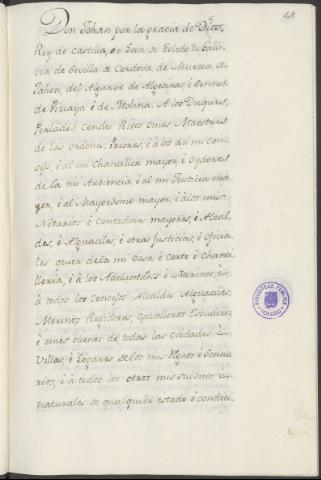 Don Johan por la gracia de Dios,
Rey de Castilla, de Leon, de Toledo, de Galli-
cia, de Sevilla, de Cordova, de Murcia, de
Jahen, del Algarve, de Algecira, é Sennor
de Vizcaya é de Molina. A los Duques,
Perlados, Condes, Ricos omes, Maestres
de las ordenes, Priores, é á los du mi con-
sejo, é al mi Chanciller mayor, é Oydores
de la mi Audiencia, é al mi Justicia ma-
yor, é al Mayordomo mayor, é á los mis
Notarios é Contadores mayores, é Alcal-
des, é Alguaciles, é otras Justicias, é Oficia-
les quier de la mi Casa é Corte é Chance-
lleria, é á los Adelantados é Merinos, é
á todos los Concejos Alcaldes, Alguaciles,
Merinos Regidores, Cavalleros Escuderos
é omes buenos de todas las cibdades, é
Villas, é Logares de los mis Regnos é Senno-
rios, é á todos los otros mis subditos, é
naturales de qualquier estado ó condici-
BIBLIOTECA PUBLICA
TOLEDO